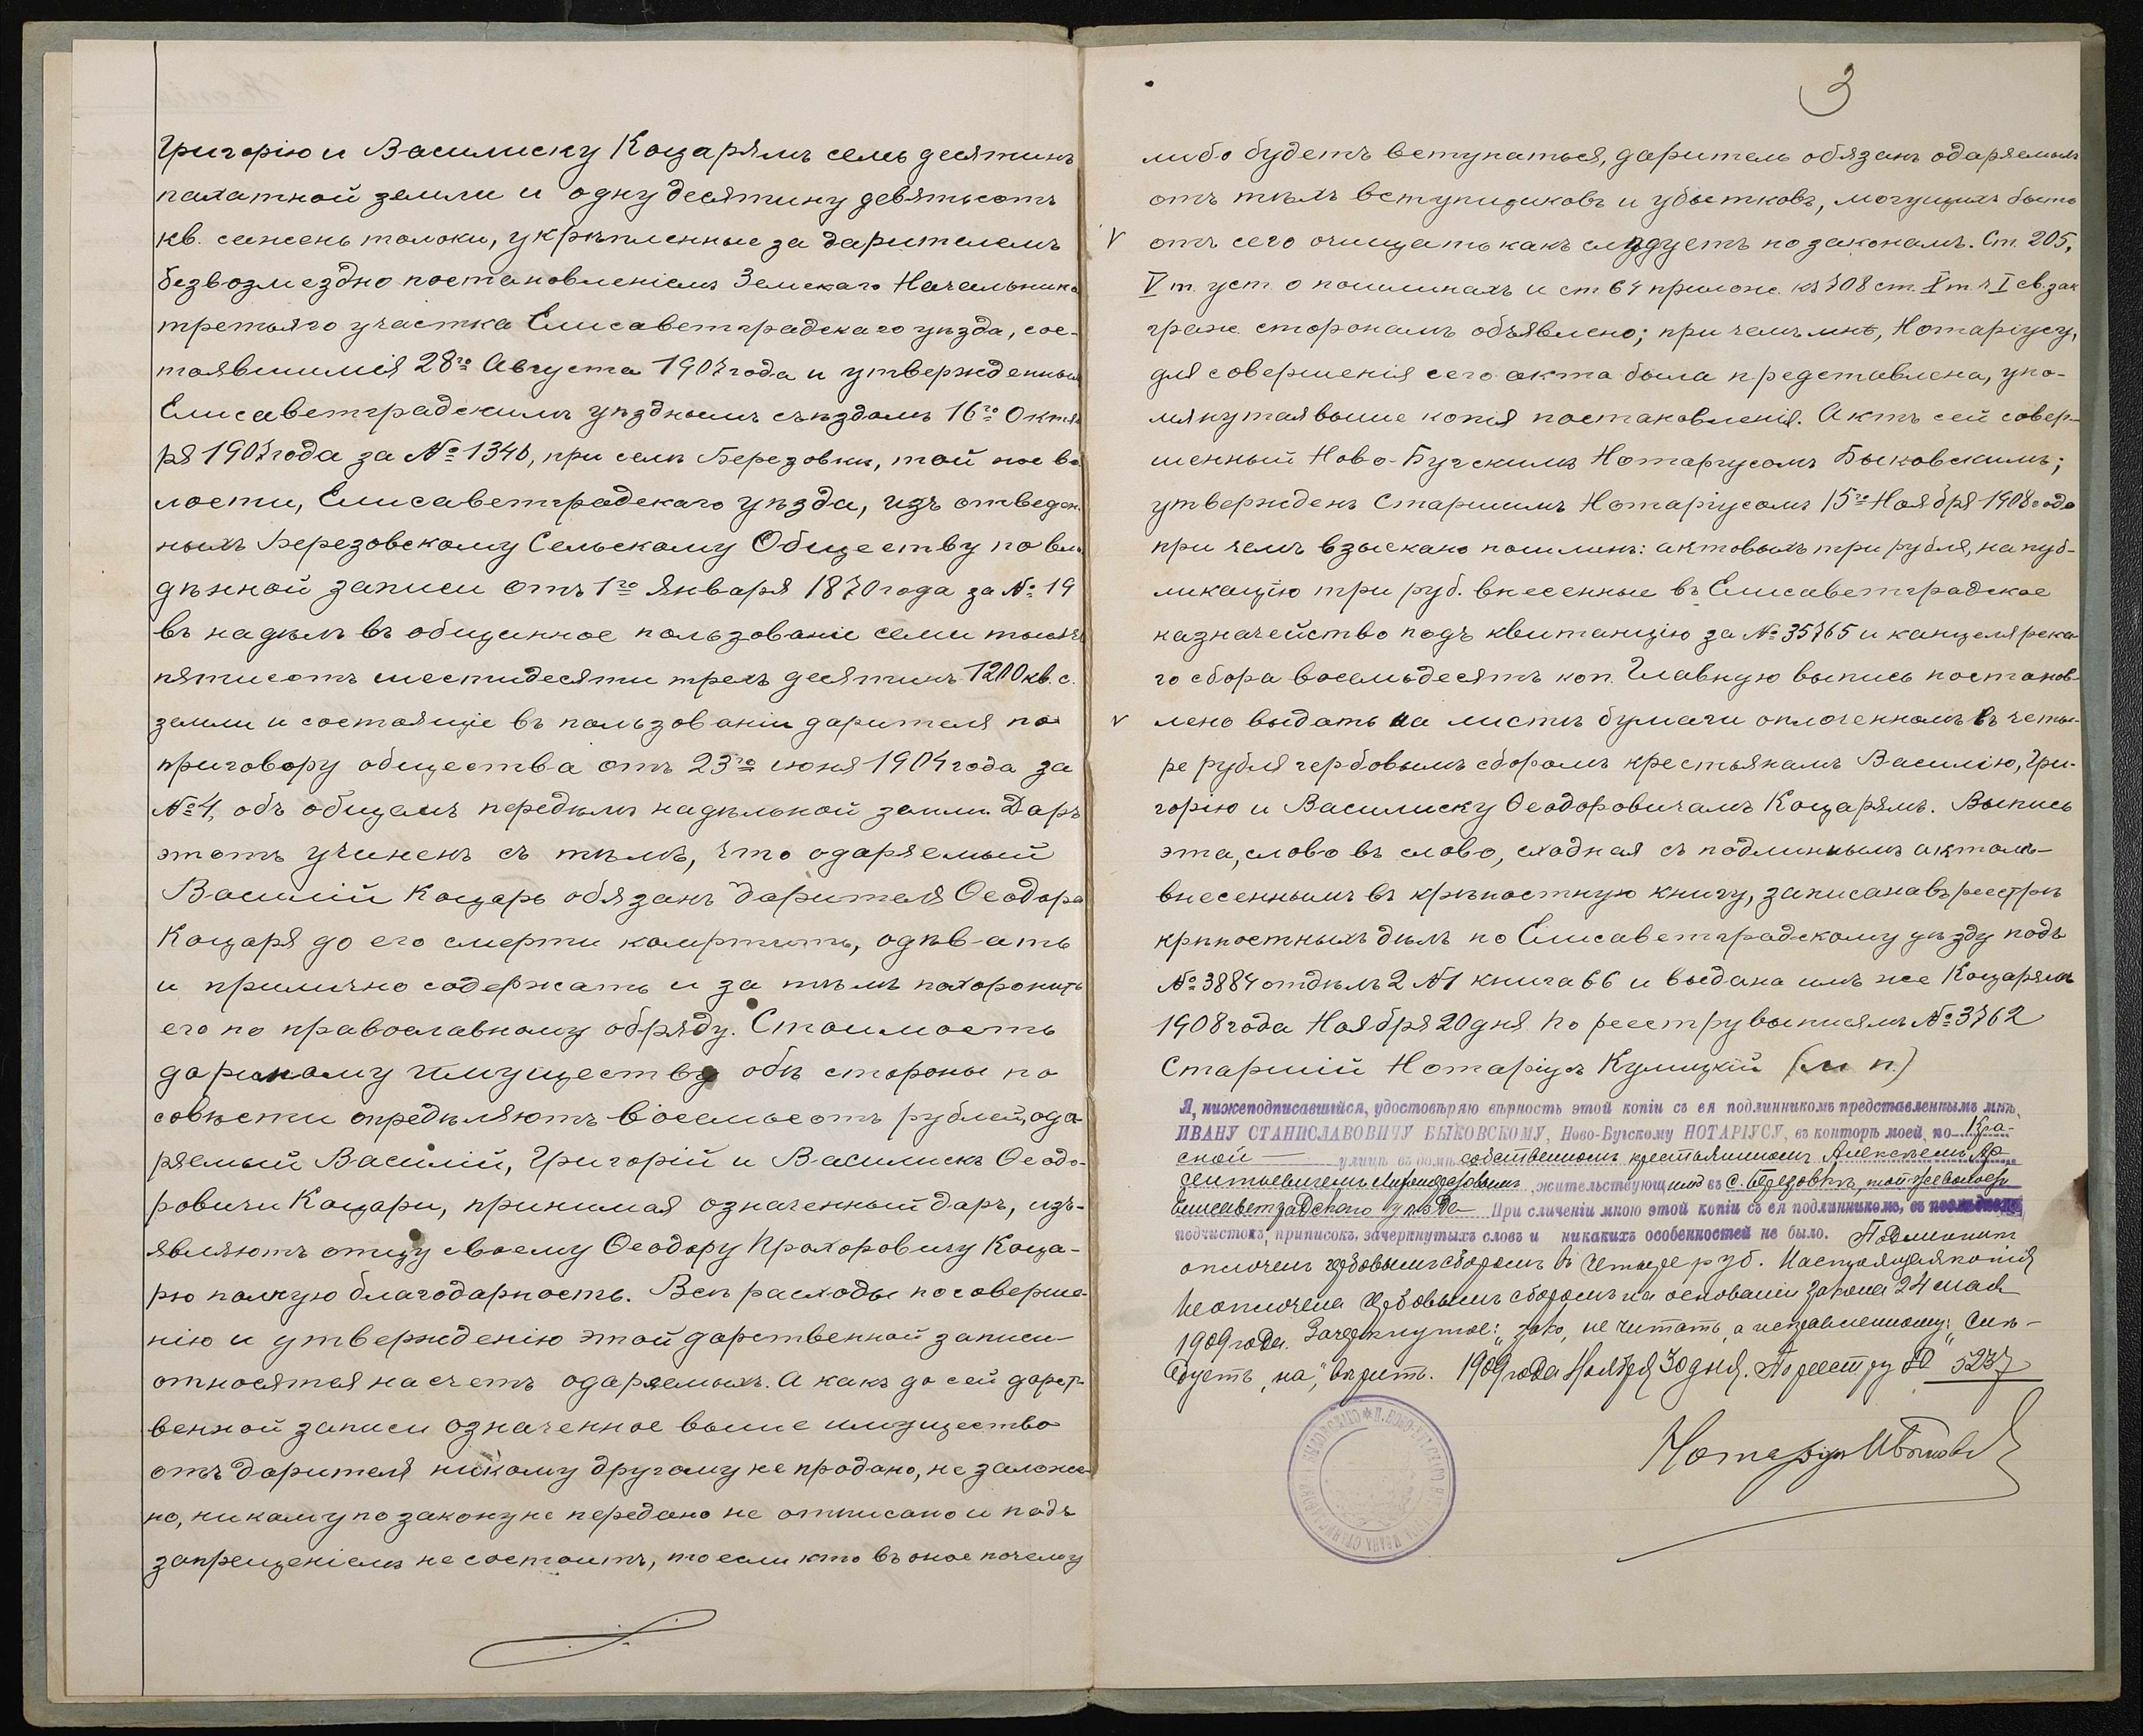 Григорію и Василиску Коцарямъ семь десятинъ
пахатной земли и одну десятину девятьсотъ
кв. сажень толоки, укрѣпленные за дарителемъ
безвозмездно постановленіемъ Земскаго Начальника
третьяго участка Елисаветградскаго уѣзда, сос-
тоявшимся 28го Августа 1907 года и утвержденнымъ
Елисаветградскимъ уѣзднымъ съѣздомъ 16го Октяб
ря 1907 года за №1346, при селѣ Березовкѣ, той же во
лости, Елисаветградскаго уѣзда, изъ отведен-
ныхъ Березовскому Сельскому Обществу по вла
дѣнной записи отъ 1го Января 1870 года за №19
въ надѣлъ въ общинное пользованіе семи тысячъ
пятисотъ шестидесяти трехъ десятинъ 1200 кв. с.
земли и состоящіе въ пользованіи дарителя по
приговору общества отъ 23го июня 1904 года за
№4, объ общемъ передѣлѣ надѣльной земли. Даръ
этотъ учиненъ съ тѣмъ, что одаряемый
Василій Коцарь обязанъ дарителя Ѳеодора
Коцаря до его смерти кормить, одѣвать
и прилично содержать и за тѣмъ похоронить
его по православному обряду. Стоимость
даримому имуществу обѣ стороны по
совѣсти опредѣляютъ въ восемьсотъ рублей, ода-
ряемый Василій, Григорій и Василискъ Ѳеодо-
ровичи Коцари, принимая означенный даръ, изъ-
являютъ отцу своему Ѳеодору Прохоровичу Коца-
рю полную благодарность. Всѣ расходы по соверше-
нію и утвержденію этой дарственной записи
относятся на счетъ одаряемыхъ. А какъ до сей дарст-
венной записи означенное выше имущество
отъ дарителя никому другому не продано, не заложе-
но, никому по закону не передано не отписано и подъ
запрещеніемъ не состоитъ, то если кто въ оное почему
3
либо будетъ вступаться, даритель обязанъ одаряемыхъ
отъ тѣхъ вступщиковъ и убытковъ, могущихъ быть
v отъ сего очищать какъ слѣдуетъ по законамъ. Ст. 205,
V т. уст. о пошлинахъ и ст 64 прилож. къ 708 ст. X т. ч I св. зак
граж. сторонамъ объявлено; при чемъ мнѣ, Нотаріусу,
для совершенія сего акта была представлена, упо-
мянутая выше копія постановленія. Актъ сей совер-
шенный Ново-Бугскимъ Нотаріусомъ Быковскимъ;
утвержденъ Старшимъ Нотаріусомъ 15го Ноября 1908 года
при чемъ взыскано пошлинъ: актовыхъ три рубля, на пуб-
ликацію три руб. внесенные въ Елисаветградское
казначейство подъ квитанцію за №35765 и канцелярска-
го сбора восемьдесятъ коп. Главную выпись постанов-
v лено выдать на листѣ бумаги оплоченномъ въ четы-
ре рубля гербовымъ сборомъ крестьянамъ Василію, Гри-
горію и Василиску Ѳеодоровичамъ Коцарямъ. Выпись
эта, слово въ слово, сходная съ подлиннымъ актомъ
внесеннымъ въ крѣпостную книгу, записана въ реестрѣ
крѣпостныхъ дѣлъ по Елисаветградскому уѣзду подъ
№3884 отдѣлъ 2 №1 книга 66 и выдана имъ же Коцарямъ
1908 года Ноября 20 дня. По реестру выписямъ №3762
Старшій Нотаріусъ Кулицкій (м п.)
Я, нижеподписавшійся, удостовѣряю вѣрность этой копіи съ ея подлинникомъ представленнымъ мнѣ,
ИВАНУ СТАНИСЛАВОВИЧУ БЫКОВСКОМУ, Ново-Бугскому НОТАРІУСУ, въ конторѣ моей, по Кра-
сной улицѣ въ домѣ собственномъ крестьяниномъ Алексѣемъ Ар
сентьевичемъ жительствующимъ въ с. Березовкѣ, той же волости
Елисаветградскаго уѣзда При сличеніи мною этой копіи съ ея подлинникомъ, въ послѣднемъ
подчистокъ, приписокъ, зачеркнутыхъ словъ и никакихъ особенностей не было. Подлинникъ
оплоченъ гербовымъ сборомъ въ четыре руб. Настоящая копія
не оплочена гербовымъ сборомъ на основаніи закона 24 мая
1909 года. Зачеркнутое: не читать, а исправленному: „слѣ-
дуетъ, на," вѣрить. 1909 года Ноября 30 дня. По реестру № 5237
Нотаріусъ И Быковскій